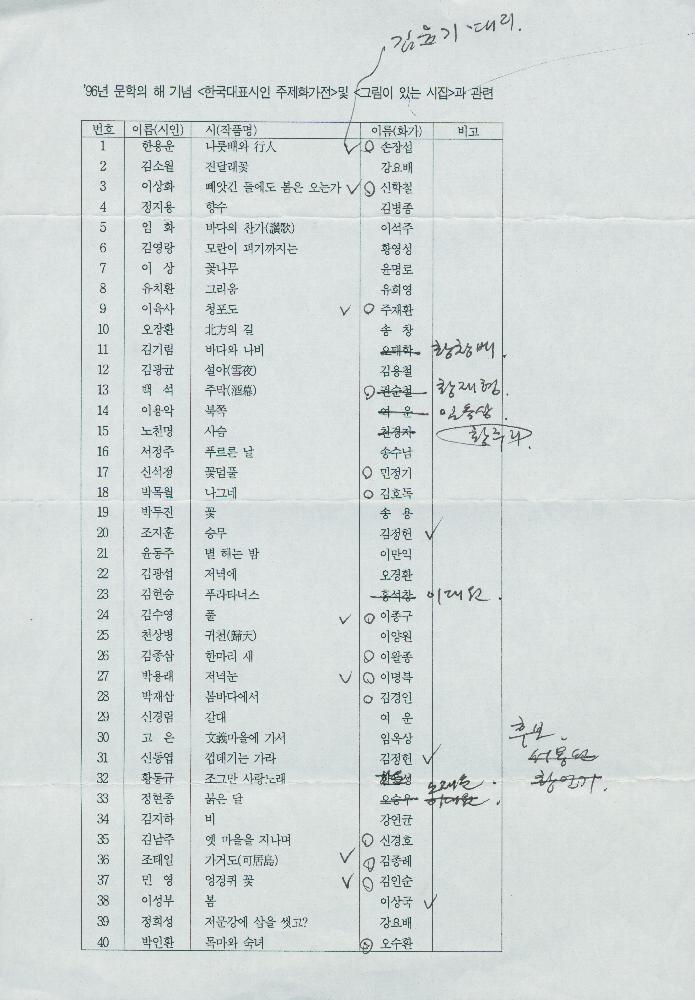 김윤기 대리.
'96년 문학의 해 기념 <한국대표시인 주제화가전>및 <그림이 있는 시집>과 관련
번호 이름(시인) 시(작품명) 이름(화가) 비고
1 한용운 나룻배와 行人 손장섭
2 김소월 진달래꽃 강요배
3 이상화 빼앗긴 들에도 봄은 오는가 신학철
4 정지용 향수 김병종
5 임 화 바다의 찬가(讚歌) 이석주
6 김영랑 모란이 피기까지는 황영성
7 이 상 꽃나무 윤명로
8 유치환 그리움 유희영
9 이육사 청포도 주재환
10 오장환 北方의 길 송 창
11 김기림 바다와 나비 오태학 황창배.
12 김광균 설야(雪夜) 김용철
13 백 석 주막(酒幕) 권순철 황재형.
14 이용악 북쪽 여 운 임옥상.
15 노천명 사슴 천경자 황주리.
16 서정주 푸르른 날 송수남
17 신석정 꽃덤풀 민정기
18 박목월 나그네 김호득
19 박두진 꽃 송 용
20 조지훈 승무 김정헌
21 윤동주 별 헤는 밤 이만익
22 김광섭 저녁에 오경환
23 김현승 푸라타너스 홍석창 이대원.
24 김수영 풀 이종구
25 천상병 귀천(歸天) 이양원
26 김종삼 한마리 새 이왈종
27 박용래 저녁눈 이명복
28 박재삼 봄바다에서 김경인
29 신경림 갈대 여 운
30 고 은 文義마을에 가서 임옥상
후보.
31 신동엽 껍데기는 가라 김정헌
32 황동규 조그만 사랑노래
33 정현종 붉은 달 오승우 이대원.
34 김지하 비 강연균
35 김남주 옛 마을을 지나며 신경호
36 조태일 가거도(可居島) 김종례
37 민 영 엉겅퀴 꽃 김인순
38 이성부 봄 이상국
39 정희성 저문강에 삽을 씻고? 강요배
40 박인환 목마와 숙녀 오수환